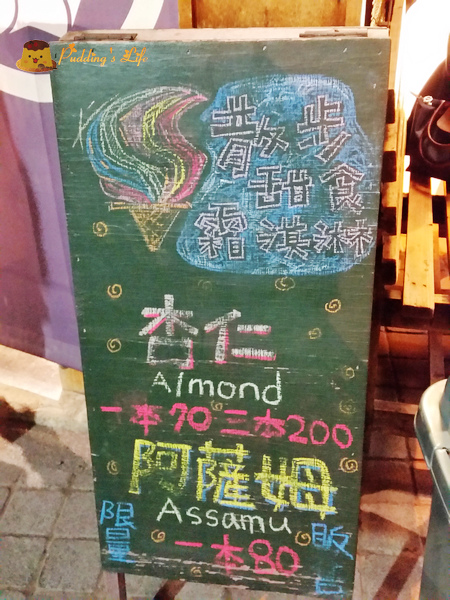 Pudding's Life
散步
甜食
霜淇淋
杏仁
Almond
一本70三本200
阿薩姆
Assamu
限量
一本80
販